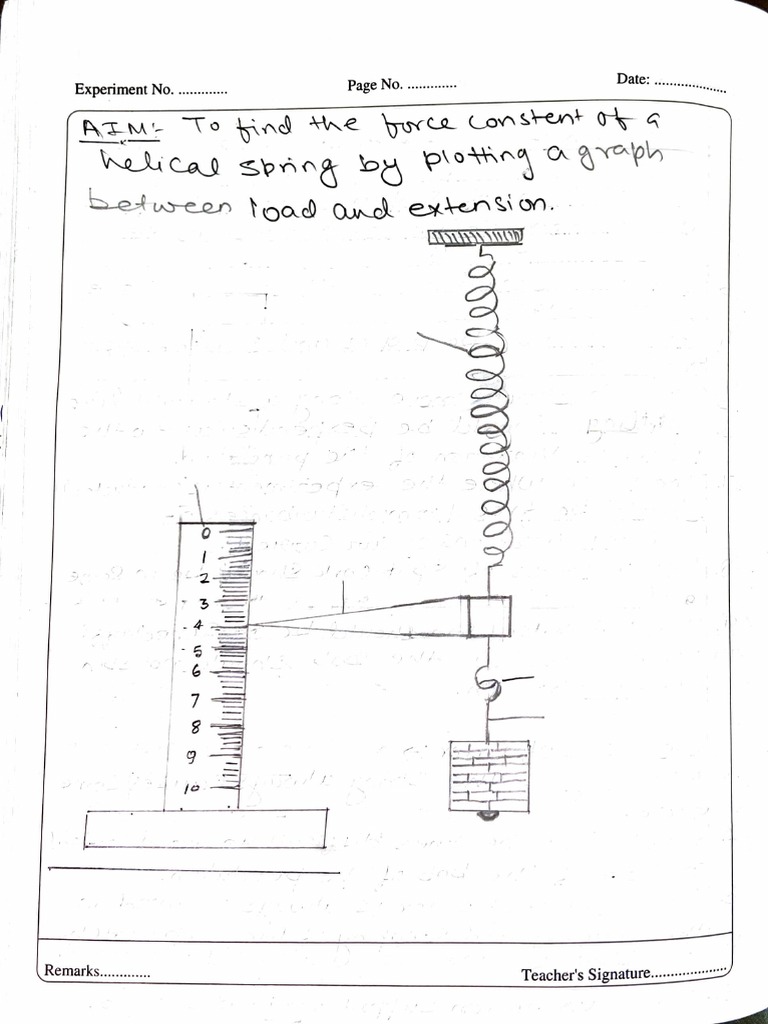 Experiment No. .............
Page No. .............
Date: ....................
AIM:- To find the force constent of a
helical spring by plotting a graph
between load and extension.
0
1
2
3
4
5
6
7
8
9
10
Remarks.............
Teacher's Signature....................